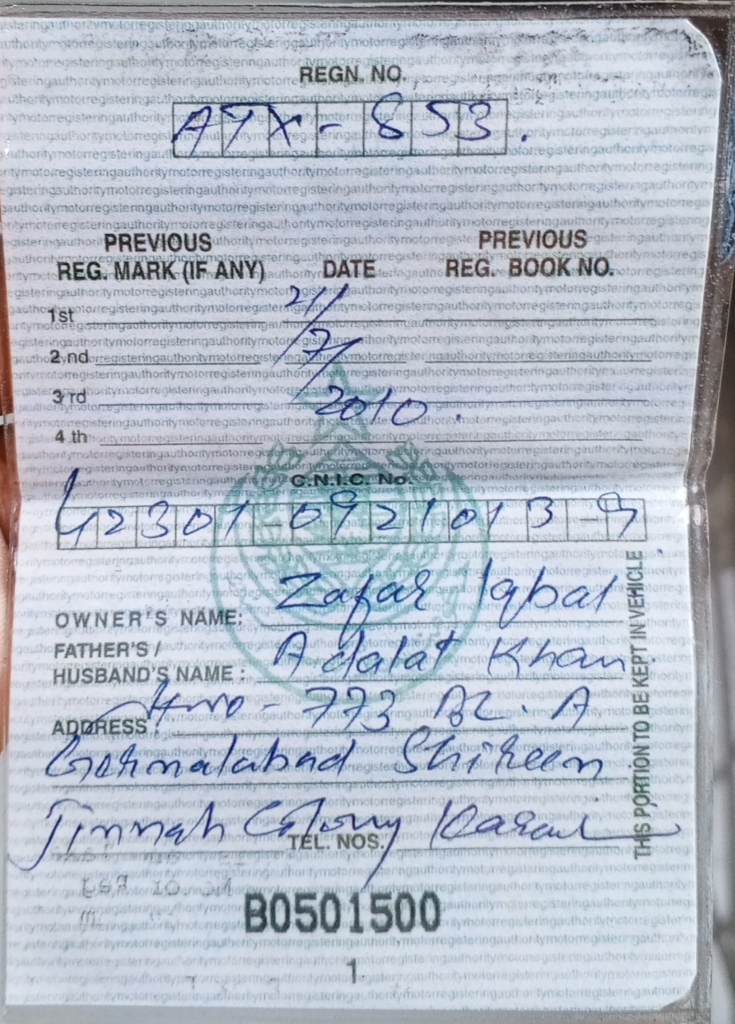 REGN. NO.
ATX-853.
PREVIOUS REG. MARK (IF ANY) DATE PREVIOUS REG. BOOK NO.
1st 21/
2nd 7/
3rd 2010.
4th
C.N.I.C. No.
42301-0921013-9
OWNER'S NAME: Zafar Iqbal
FATHER'S / HUSBAND'S NAME: Adalat Khan.
ADDRESS: Hno-773 BL. A
Shireen
Jinnah Colony
TEL. NOS.
B0501500
1
THIS PORTION TO BE KEPT IN VEHICLE